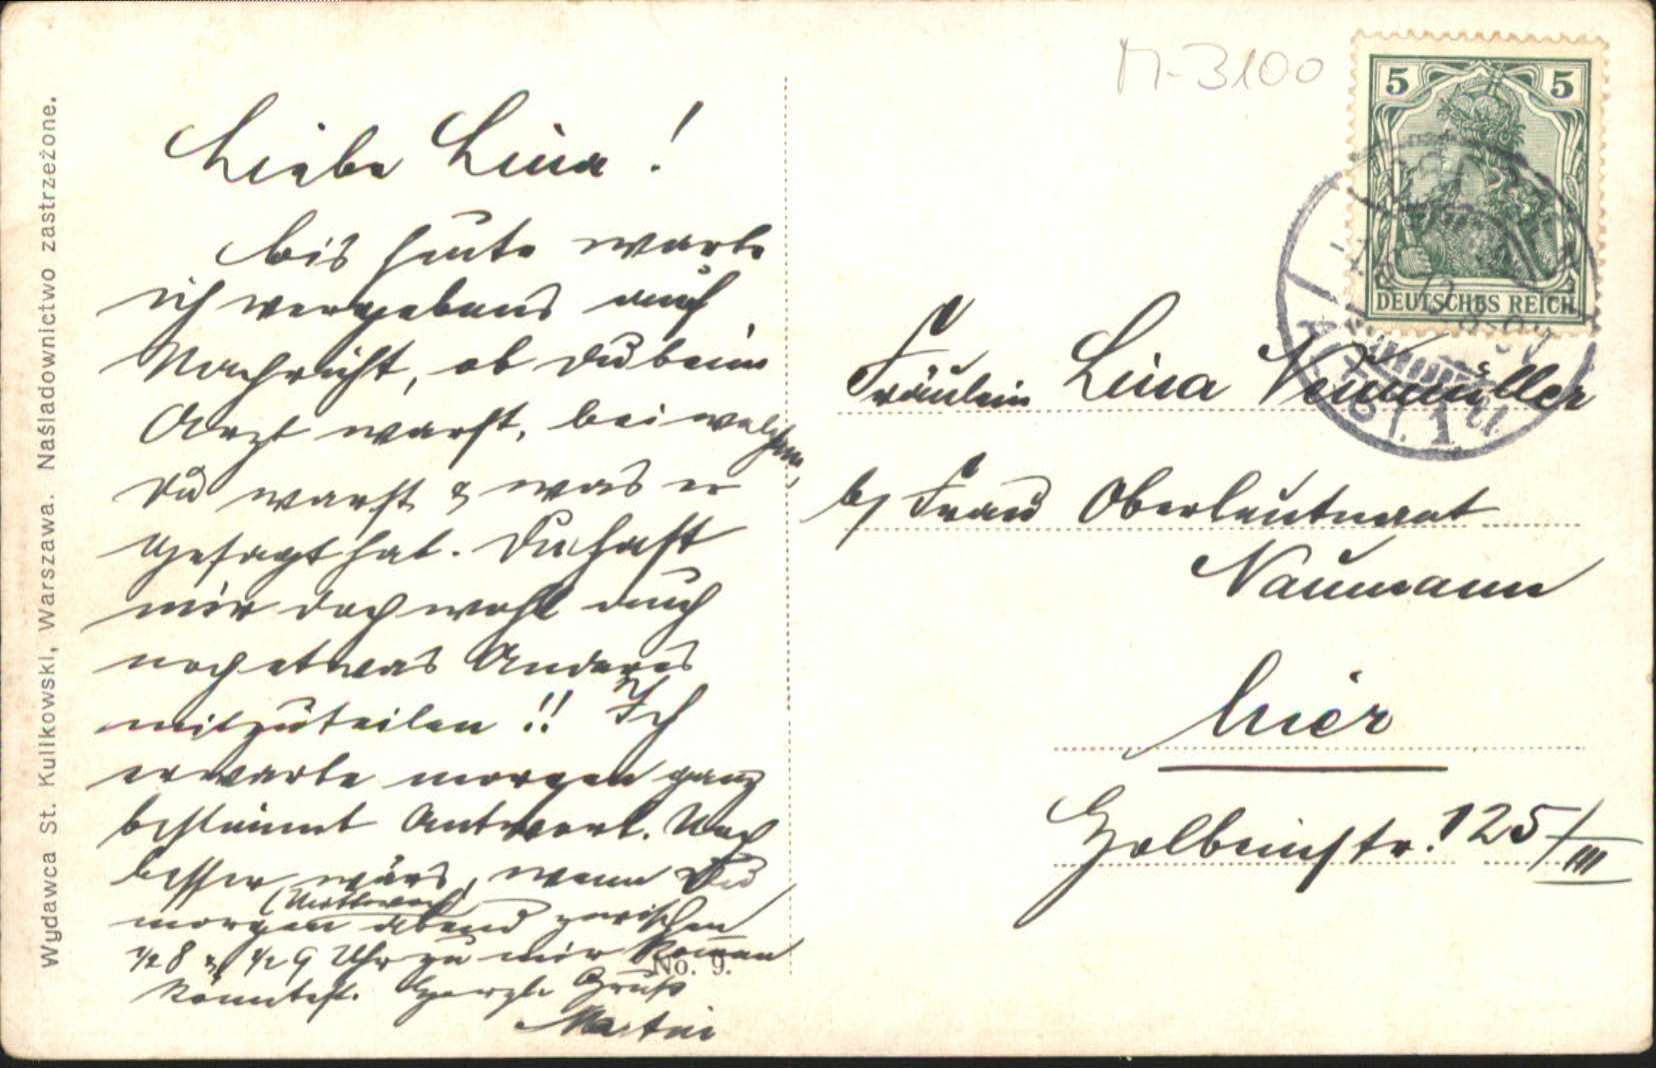 Wydawca St. Kulikowski, Warszawa. Naśladownictwo zastrzeżone.
Liebe Lina!
bis heute warte
ich vergebens auf
Nachricht, ob Du beim
Arzt warst, bei welchem
Du warst & was er
gesagt hat. Du hast
mir doch wohl auch
noch etwas Anderes
mitzuteilen!! Ich
erwarte morgen ganz
bestimmt Antwort. Noch
besser wärs, wenn Du
(Mittwoch)
morgen abend zwischen
1/2 8 & 1/2 9 Uhr zu mir kommen
könntest. Herzl. Gruß
Martin
No. 9.
M-3100
5 5
DEUTSCHES REICH
Fräulein Lina Neumüller
b/ Frau Oberleutnant
Naumann
hier
Holbeinstr. 125/III